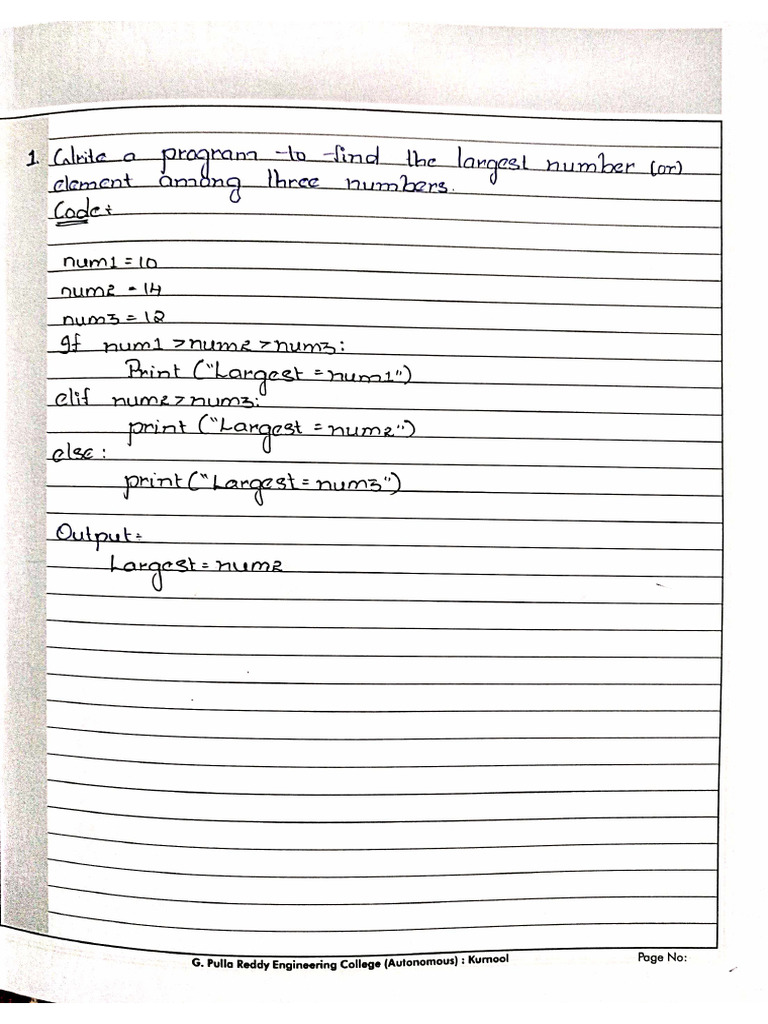 1. Write a program to find the largest number (or)
element among three numbers.
Code:
num1 = 10
num2 = 14
num3 = 12
If num1 > num2 > num3:
Print ("Largest = num1")
elif num2 > num3:
print ("Largest = num2")
else:
print ("Largest = num3")
Output:
Largest = num2
G. Pulla Reddy Engineering College (Autonomous) : Kurnool
Page No: